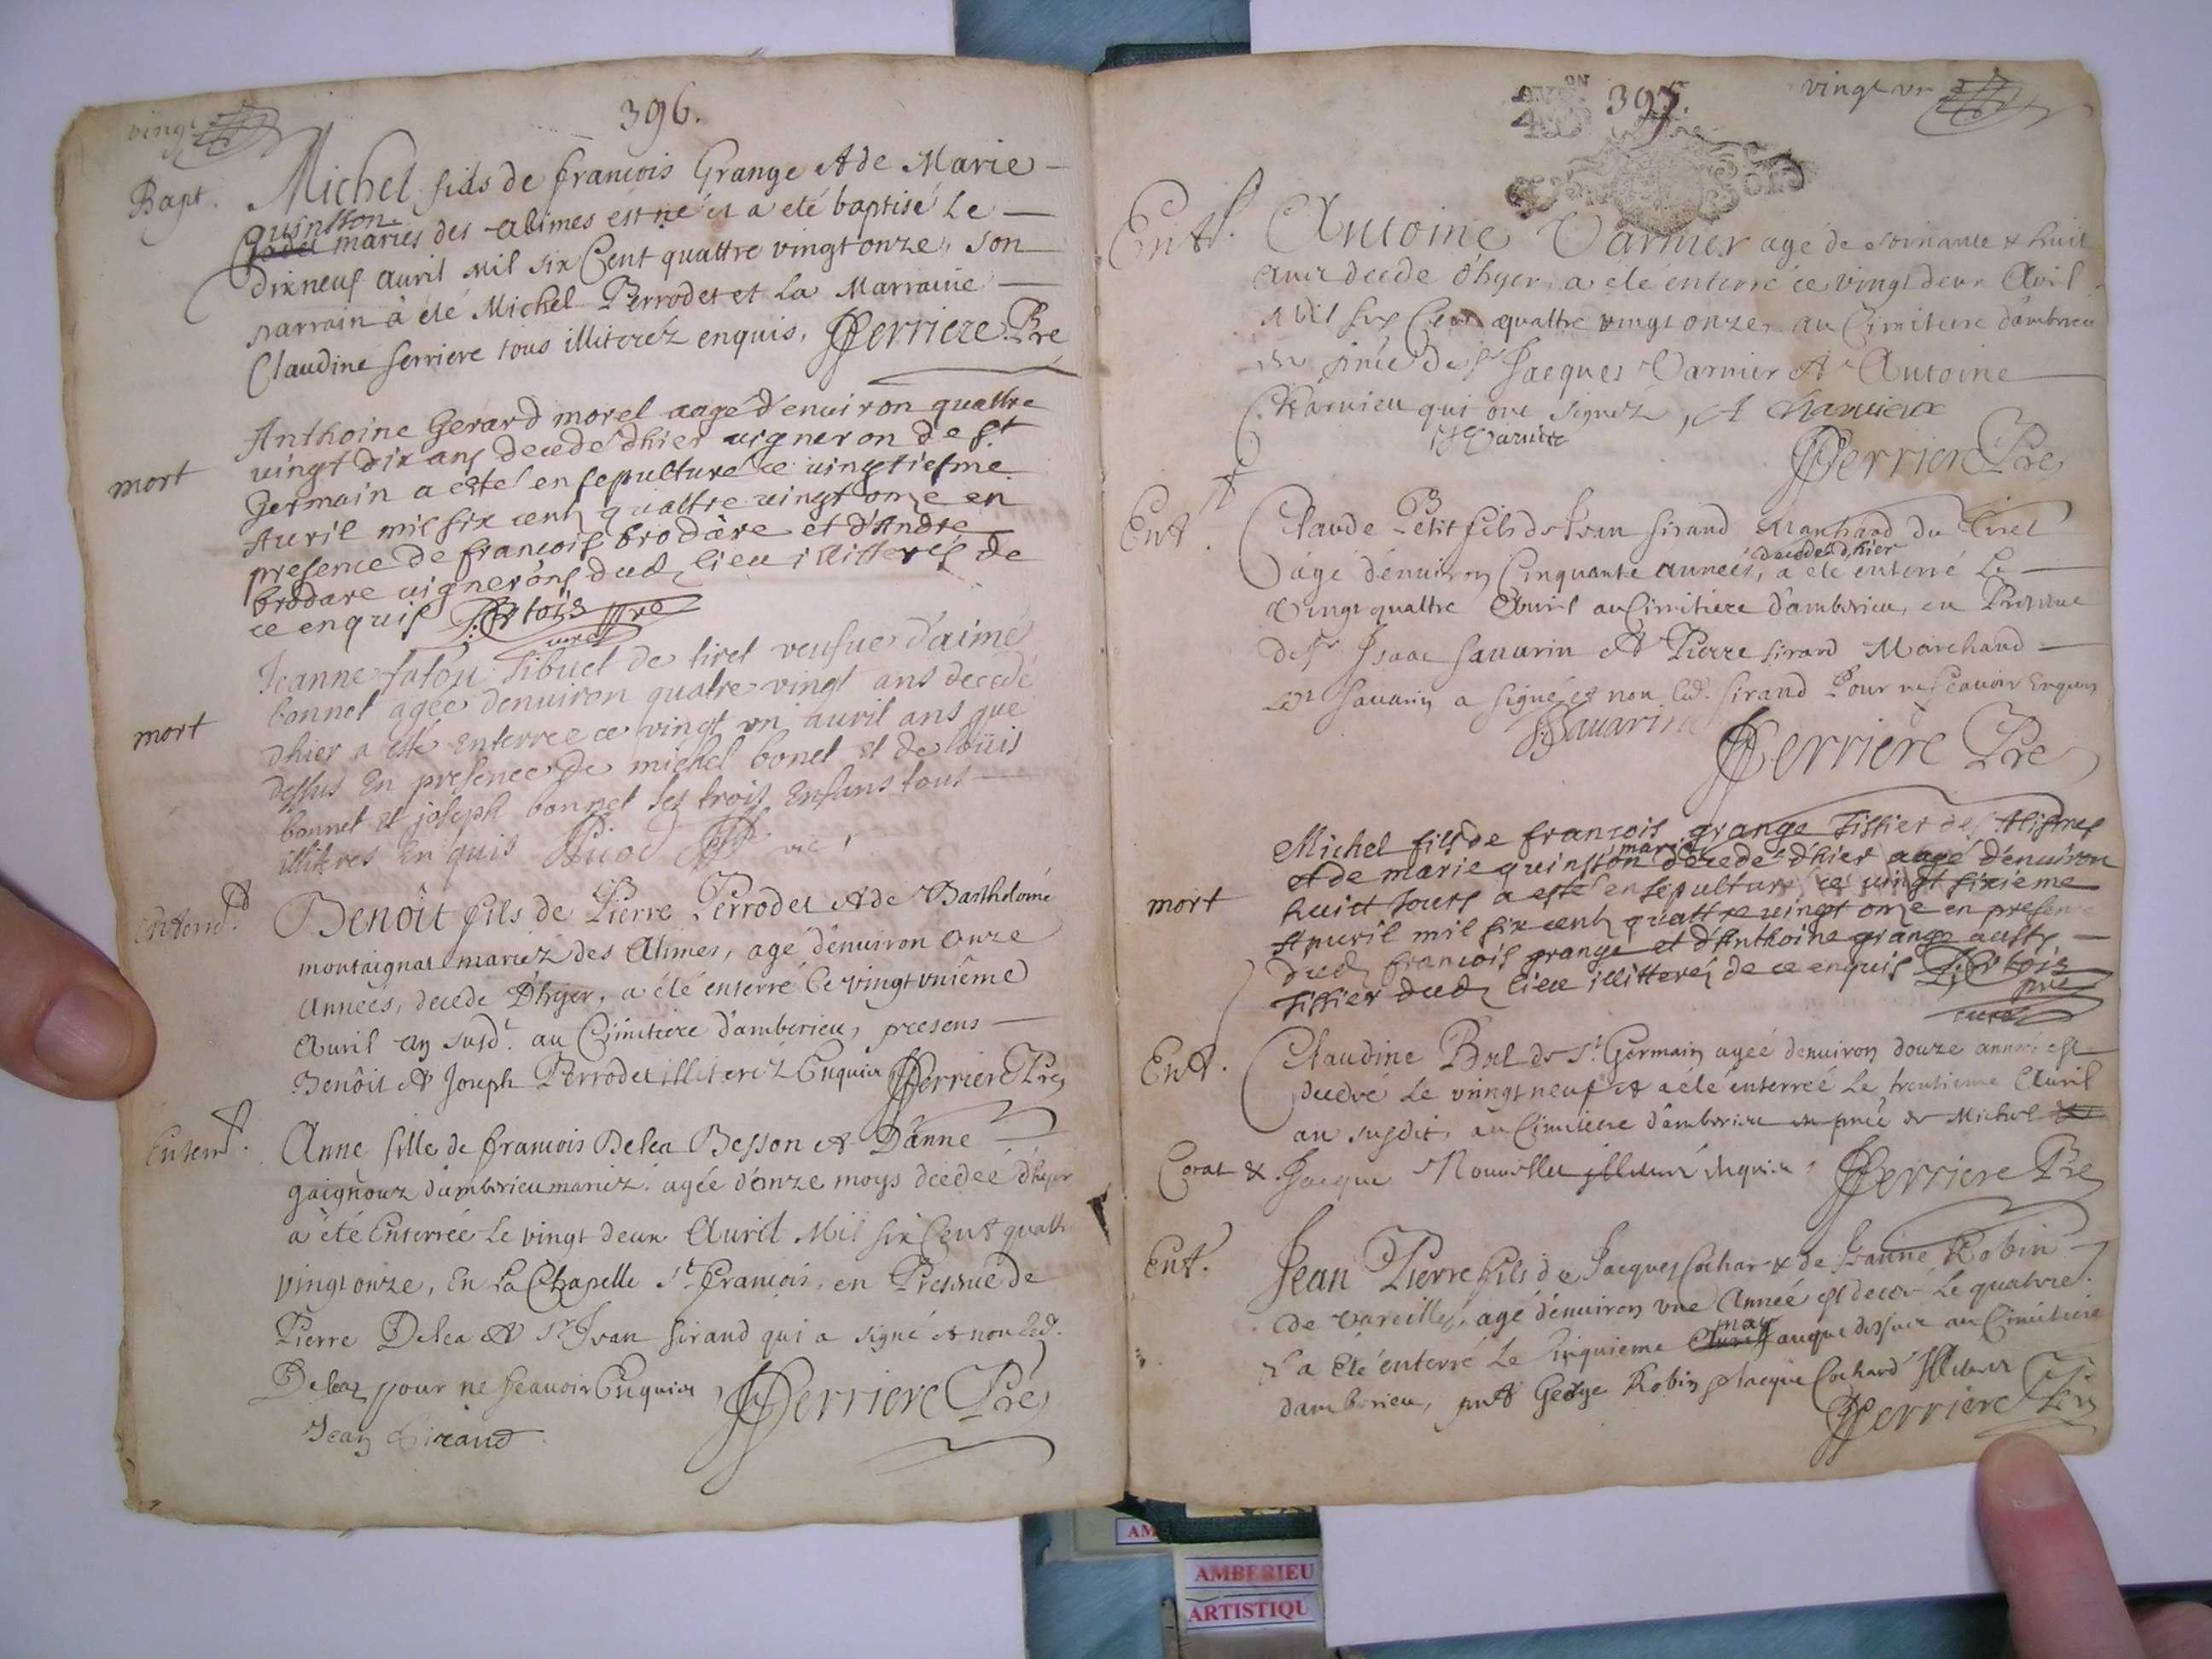 vingt
396.
Bapt.
Michel fils de francois Grange & de Marie
quinston
mariés des alimes est né et a eté baptisé Le
dixneuf auril Mil six Cent quattre vingt onze, son
parrain à été Michel Perrodet et La Marraine
Claudine ferriere tous illiterez enquis. Fferriere Pre
mort
Anthoine Gerard morel aage d'enuiron quattre
uingt dix ans decede dhier uigneron de st
Germain a esté ensepulturé ce uingtiesme
Auril mil six cents quattre uingt onze en
presence de francois brodare et d'Andre
brodare uignerons dud lieu illitterés de
ce enquis
pre
curé
mort
Jeanne tibuet de tiret veufue d'aimé
bonnet agée denuiron quatre vingt ans decedé
dhier a esté enterree ce vingt vn auril ans que
dessus En presence de michel bonet et de loüis
bonnet et joseph bonnet ses trois Enfans tous
illiteres En quis vic
Enterrt.
Benôit fils de Pierre Perrodet & de Bartholomé
montaignat mariez des Alimes, agé dénuiron onze
Années, decede D'hyer, a été enterré Le vingt vniéme
Auril an susdt. au Cimitiere d'amberieu, presens
Benôit & Joseph Perrodet illiterez Enquis Fferriere Pre
Enterrt.
Anne fille de francois Delea Besson & D'anne
gaignouz damberieu mariez. agée d'onze moys decedeé d'hyer
a été Enterreé Le vingt deux Auril Mil six Cent quatt
vingt onze, En La Chapelle St. francois, en Presence de
Pierre Delea & Sr Jean sirand qui a signé et non led.
Deleaz pour ne sçauoir Enquis Fferriere Pre
Jean Sirand
395.
vingt vn
Entt.
Antoine Varnier agé de soixante & huit
decede d'hyer, a été enterré ce vingt deux Auril
Mil six Cent quattre vingt onze, au Cimitiere d'ambrieu
en pnce de sr Jacques Varnier & Antoine
Charuieu qui ont signéz, A Charuieux
J Varnier
Fferriere Pre
Entt.
Claude Petit fils de Jean sirand Marchand du Tiret
decedé dhier
âgé dénuiron Cinquante années, a été enterré Le
Vingt quattre Auril au Cimitiere d'amberieu, en Presence
de sr Isaac sauarin & Pierre sirand Marchand
Ledt sauarin a signé et non led. sirand Pour ne sçauoir Enquis
Sauarin
Fferriere Pre
mort
Michel fils de francois grange tissier des Alismes
mariés
et de marie quinston decede d'hier aagé d'enuiron
huict jours a esté ensepulturé ce uingt sixieme
Apuril mil six cents quattre uingt onze en presence
dud francois grange et d'Anthoine grange aussy
tissier dud lieu illitterés de ce enquis
pre
curé
Entt.
Claudine Bal de St. Germain agéé denuiron douze années est
decedée Le vingt neuf & a été enterreé Le trentieme Auril
an susdit, au Cimitiere d'amberieu en pnce de Michel
Corat & Jacque Enquis, Fferriere Pre
Entt.
Jean Pierre fils de Jacques Cochar & de Jeanne Robin
de Vareilles, agé dénuiron vne Année est decedé Le quatre
may
& a été enterré Le Cinquieme Auril an que dessus au Cimitiere
damberieu, pnts George Robin & Jacque Cochard Illiterez
Fferriere Pre
AMBERIEU
ARTISTIQU